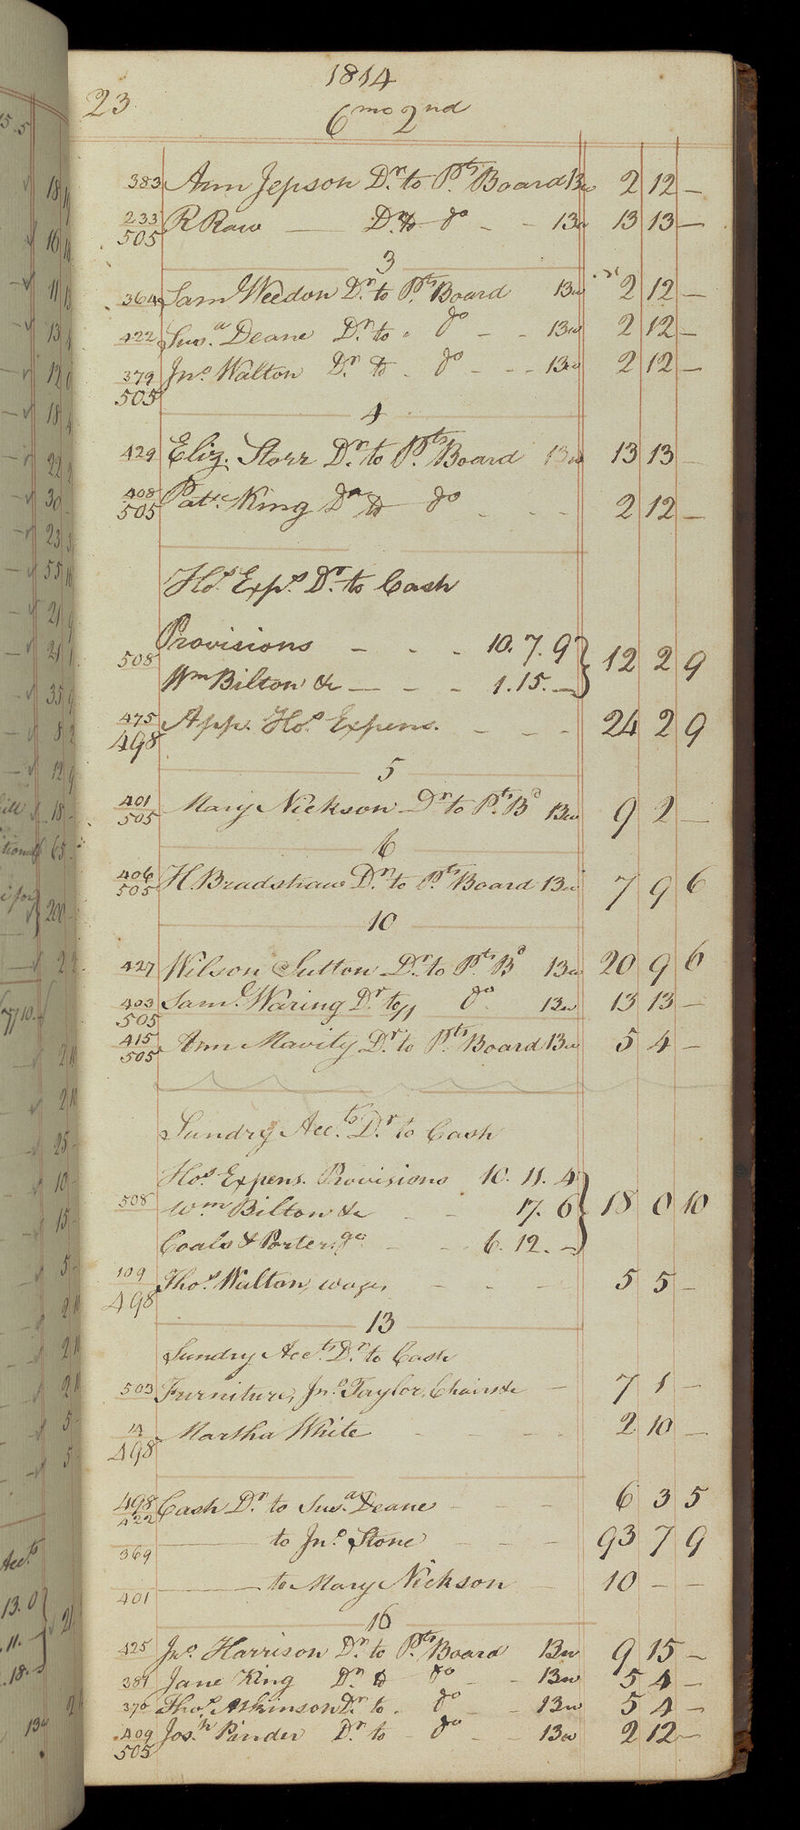 1814
23 6mo 2nd
383 Ann Jepson Dr. to Pts. Board 13w 2 12 —
233 R Raw — Dr. to do - - 13w 13 13 —
505
3
364 Saml. Weedon Dr. to Pts. Board 13w 2 12 —
422 Susa. Deane Dr. to do - - 13w 2 12 —
379 Jno. Walton Dr. to do - - - 13w 2 12 —
505
4
429 Eliz. Storr Dr. to Pts. Board 13w 13 13
408 Patce. King Dr. to do - - - 2 12 —
505
Hos. Exps. Dr. to Cash
Provisions - - - 10. 7. 9
508 12 2 9
Wm Bilton &c — - - 1. 15. —
475 App. Hos. Expens. - - - 24 2 9
498
5
401 Mary Nickson Dr. to Pts. Bd 13w 9 2 —
505
6
406 H Bradshaw Dr. to Pts. Board 13w 7 9 6
505
10
427 Wilson Sutton Dr. to Pts. Bd 13w 20 9 6
403 Saml. Waring Dr. to do 13w 13 13 —
505
415 Ann Mavity Dr. to Pts. Board 13w 5 4 —
505
Sundry Accts. Dr. to Cash
Hos. Expens. Provisions 10. 11. 4
508 Wm Bilton &c - - 17. 6 18 0 10
Coals & Porterage - - 6. 12. —
109 Thos. Walton, wages - - - 5 5 —
498
13
Sundry Accts. Dr. to Cash
503 Furniture, Jno. Taylor, Chairs &c — 7 1 —
14 Martha White - - - - 2 10 —
498
498 Cash Dr. to Susa. Deane - - - 6 3 5
422
369 — to Jno. Stone - - - 93 7 9
401 — to Mary Nickson - 10 — —
16
425 Jno. Harrison Dr. to Pts. Board 13w 9 15 —
381 Jane King Dr. to do - - 13w 5 4 —
370 Thos. Atkinson Dr. to do - - 13w 5 4 —
409 Josh. Pinder Dr. to do - - 13w 2 12 —
505